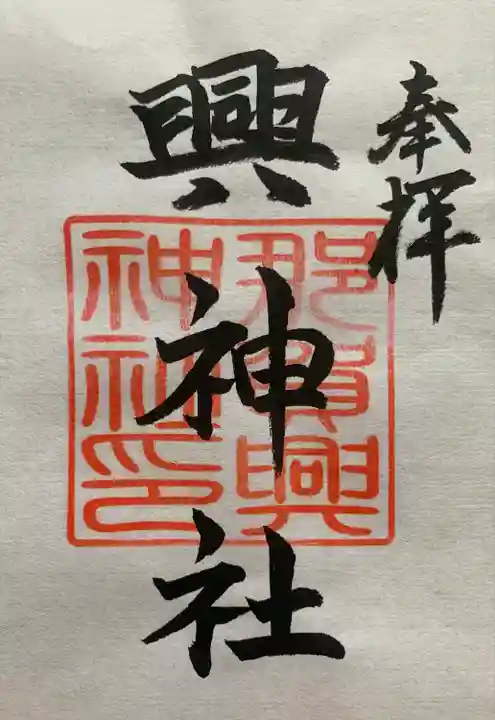 奉拝
興神社
那賀興
神社印